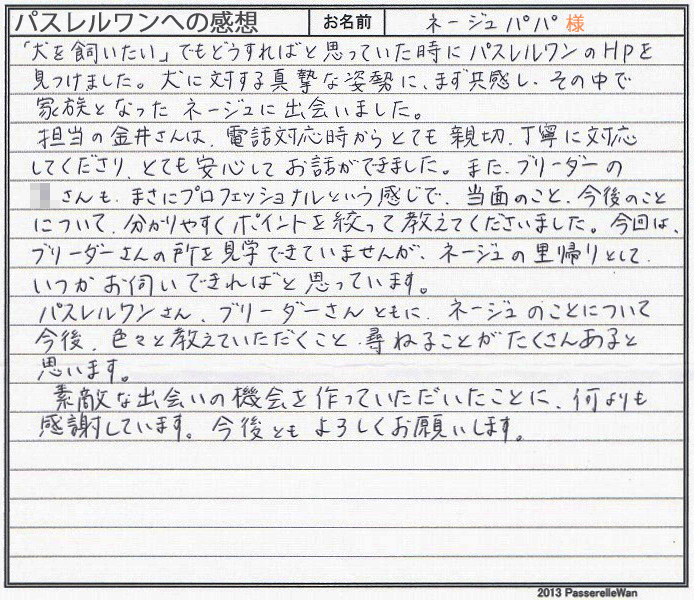 パスレルワンへの感想 お名前 ネージュパパ 様
「犬を飼いたい」でもどうすればと思っていた時にパスレルワンのHPを
見つけました。犬に対する真摯な姿勢に、まず共感し、その中で
家族となったネージュに出会いました。
担当の金井さんは、電話対応時からとても親切、丁寧に対応
してくださり、とても安心してお話ができました。また、ブリーダーの
さんも、まさにプロフェッショナルという感じで、当面のこと、今後のこと
について、分かりやすくポイントを絞って教えてくださいました。今回は、
ブリーダーさんの所を見学できていませんが、ネージュの里帰りとして、
いつかお伺いできればと思っています。
パスレルワンさん、ブリーダーさんともに、ネージュのことについて
今後、色々と教えていただくこと、尋ねることがたくさんあると
思います。
素敵な出会いの機会を作っていただいたことに、何よりも
感謝しています。今後ともよろしくお願いします。
2013 PasserelleWan